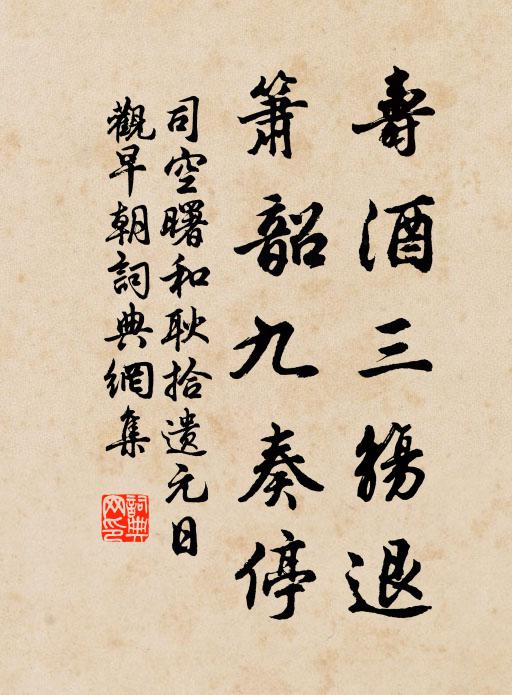 壽酒三觴退
簫韶九奏停
司空曙和耿拾遺元日
觀早朝詞典網集
詞典网印